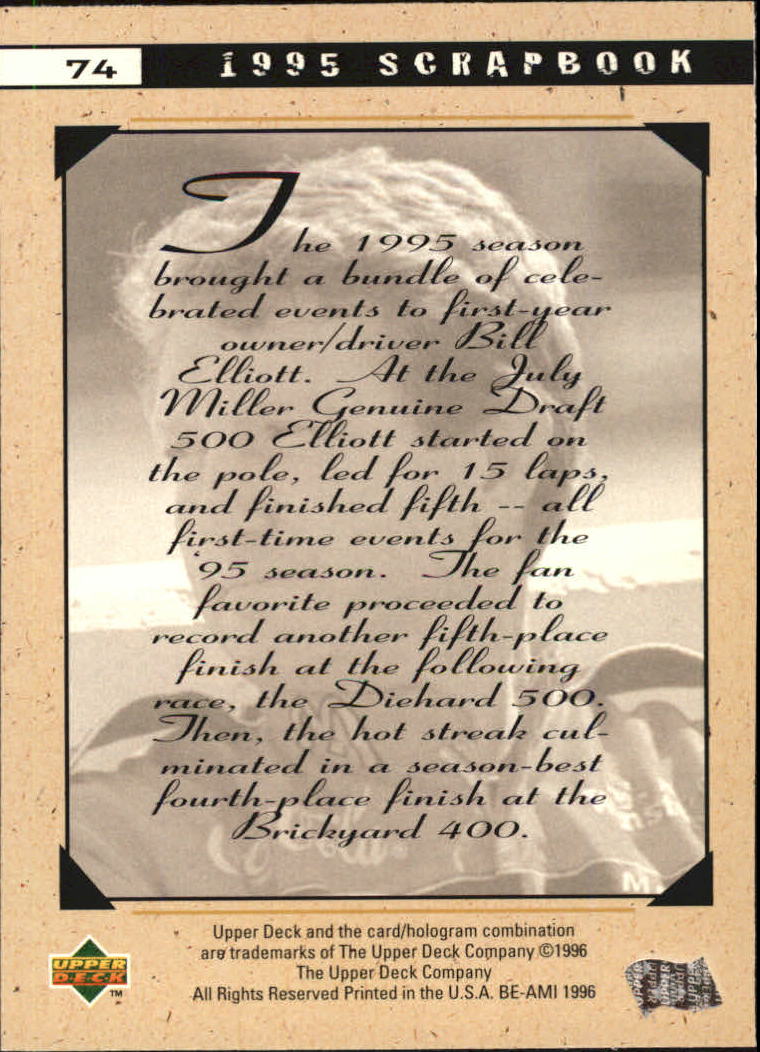 74
1995 SCRAPBOOK
The 1995 season
brought a bundle of cele-
brated events to first-year
owner/driver Bill
Elliott. At the July
Miller Genuine Draft
500 Elliott started on
the pole, led for 15 laps,
and finished fifth -- all
first-time events for the
'95 season. The fan
favorite proceeded to
record another fifth-place
finish at the following
race, the Diehard 500.
Then, the hot streak cul-
minated in a season-best
fourth-place finish at the
Brickyard 400.
M.
Upper Deck and the card/hologram combination
are trademarks of The Upper Deck Company ©1996
The Upper Deck Company
All Rights Reserved Printed in the U.S.A. BE-AMI 1996
UPPER
D·E·C·K
TM